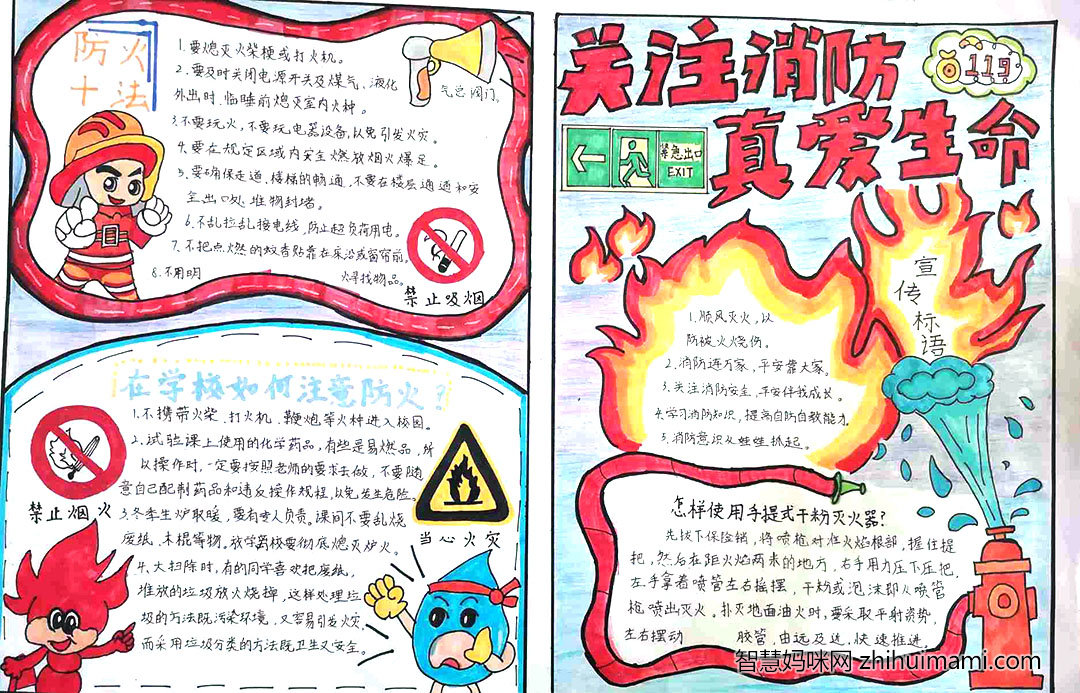 防火
十法
1.要熄灭火柴梗或打火机。
2.要及时关闭电源开关及煤气、液化
气总阀门。
外出时、临睡前熄灭室内火种。
3.不要玩火,不要玩电器设备,以免引发火灾。
4.要在规定区域内安全燃放烟火爆足。
5.要确保走道、楼梯的畅通,不要在楼层通道和安
全出口处堆物封堵。
6.不乱拉乱接电线,防止超负荷用电。
7.不把点燃的蚊香贴靠在床沿或窗帘前。
8.不用明
火寻找物品。
禁止吸烟
在学校如何注意防火?
1.不携带火柴、打火机、鞭炮等火种进入校园。
2.试验课上使用的化学药品,有些是易燃品,所
以操作时,一定要按照老师的要求去做,不要随
意自己配制药品和违反操作规程,以免发生危险。
3.冬季生炉取暖,要有专人负责。课间不要乱烧
废纸、木棍等物,放学离校要彻底熄灭炉火。
4.大扫除时,有的同学喜欢把废纸,
堆放的垃圾放火烧掉,这样处理垃
圾的方法既污染环境,又容易引发火灾,
而采用垃圾分类的方法既卫生又安全。
禁止烟火
当心火灾
关注消防
119
真爱生命
紧急出口
EXIT
宣传标语
1.顺风灭火,以
防被火烧伤。
2.消防连万家,平安靠大家。
3.关注消防安全,平安伴我成长。
4.学习消防知识,提高自防自救能力
5.消防意识从娃娃抓起。
怎样使用手提式干粉灭火器?
先拔下保险销,将喷枪对准火焰根部,握住提
把,然后在距火焰两米的地方,右手用力压下压把,
左手拿着喷管左右摇摆,干粉或泡沫即从喷管
枪喷出灭火,扑灭地面油火时,要采取平射姿势,
左右摆动 胶管,由远及近,快速推进
智慧妈咪网 zhihuimami.com